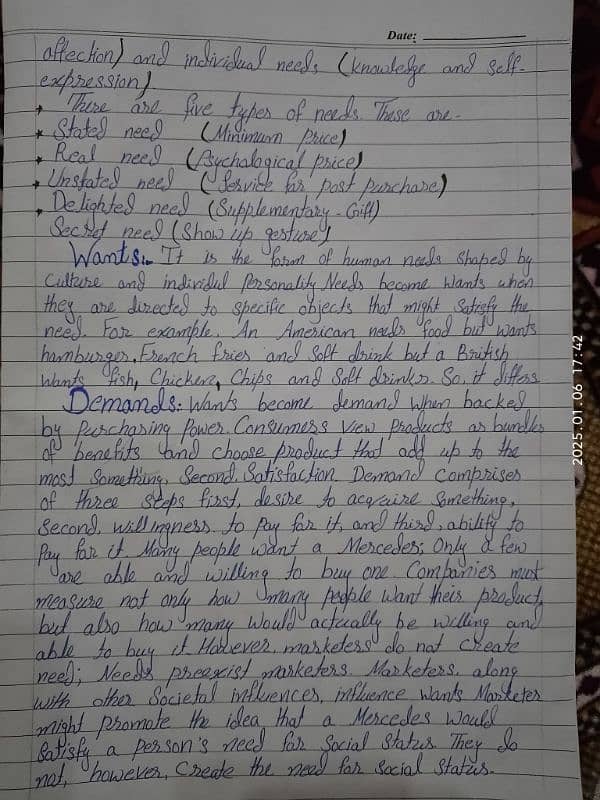 Date:
affection) and individual needs (knowledge and self-
expression).
There are five types of needs. These are -
Stated need (Minimum price)
Real need (Psychological price)
Unstated need (Service for post purchase)
Delighted need (Supplementary - Gift)
Secret need (Show up gesture)
Wants:- It is the form of human needs shaped by
Culture and individual personality Needs become wants when
they are directed to specific objects that might satisfy the
need. For example. An American needs food but wants
hamburger, French fries and soft drink but a British
wants fish, Chicken, Chips and Soft drinks. So, it differs
Demands: Wants become demand when backed
by purchasing power. Consumers view products as bundles
of benefits and choose product that add up to the
most Something, Second, Satisfaction. Demand comprises
of three steps first, desire to acquire Something,
Second, willingness to pay for it, and third, ability to
Pay for it. Many people want a Mercedes; Only a few
are able and willing to buy one. Companies must
measure not only how many people want their product,
but also how many would actually be willing and
able to buy it. However, marketers do not create
need; Needs preexist marketers. Marketers, along
with other Societal influences, influence wants Marketer
might promote the idea that a Mercedes would
Satisfy a person's need for Social Status. They do
not, however, Create the need for Social Status.
2025.01.06 17:42